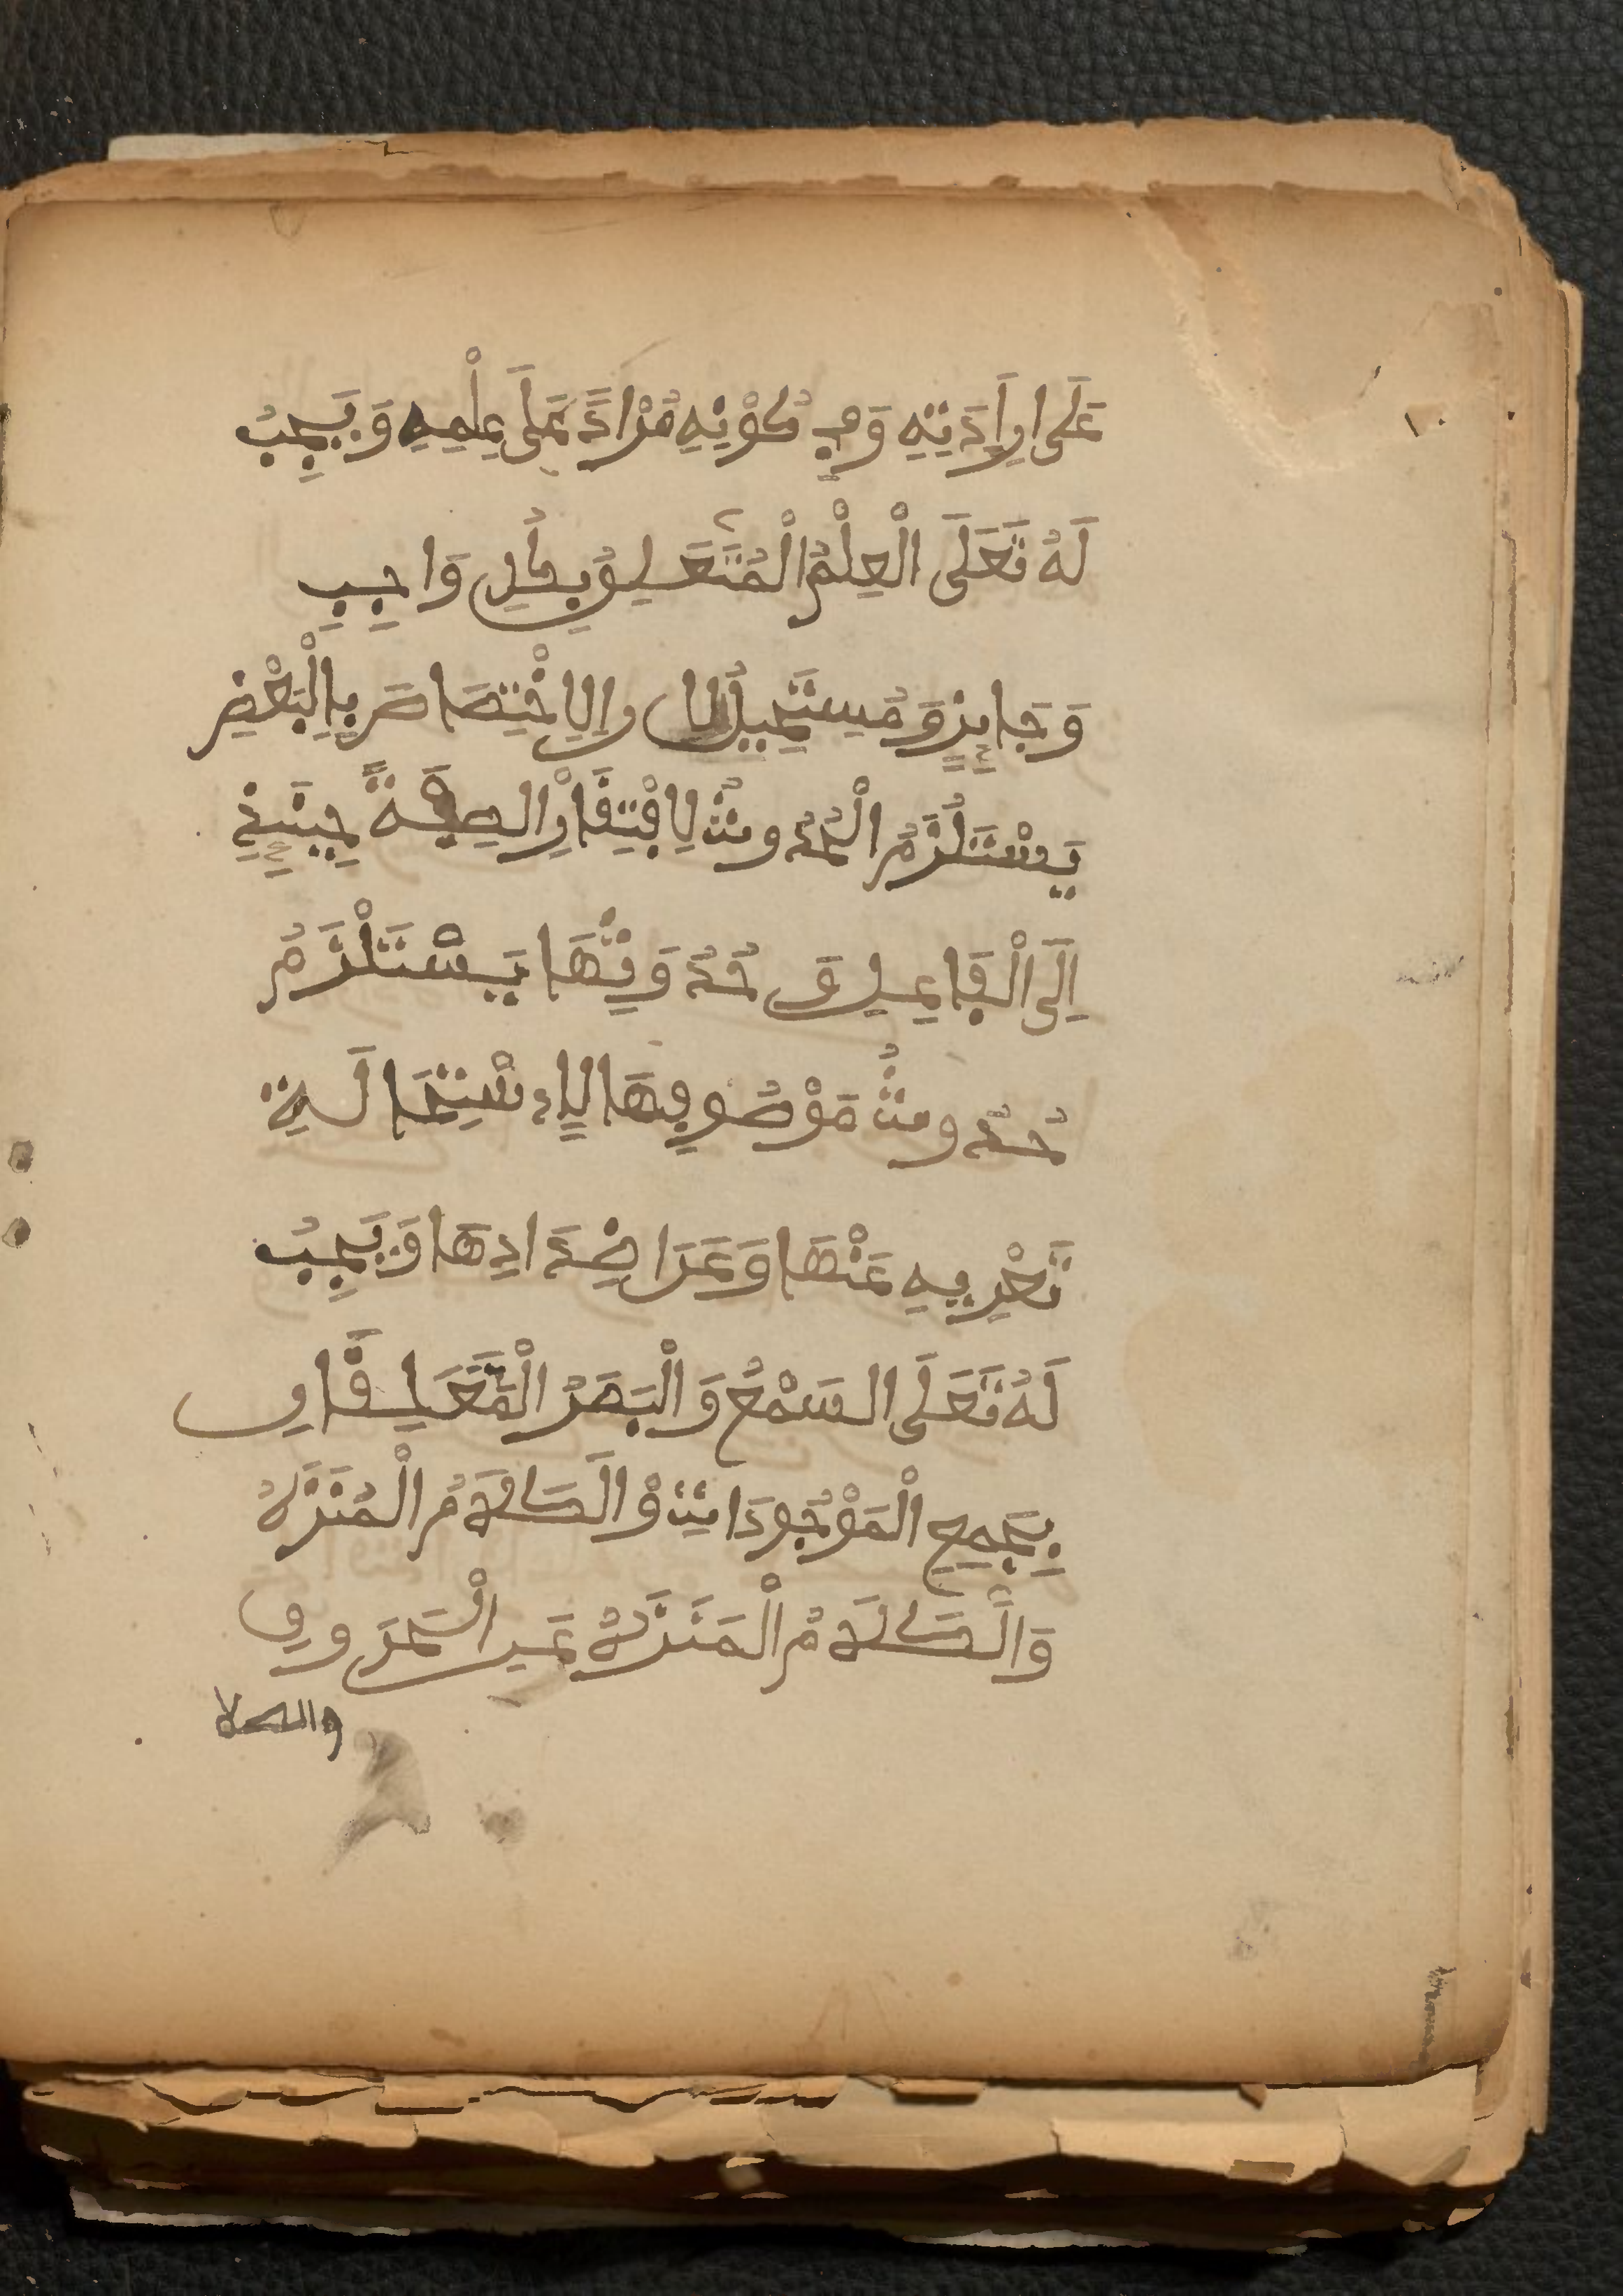 ١٠
عَلَى اِرَادَتِهِ وَفِي كَوْنِهِ مُرَاداً عَلَى عِلْمِهِ وَيَجِبُ
لَهُ تَعَلَى الْعِلْمُ الْمُتَعَلِقُ بِكُلِ وَاجِبٍ
وَجَايِزٍ وَمُسْتَحِيلٍ لِاَن الِاخْتِصَاصَ بِالْبَعْضِ
يَسْتَلْزَمُ الْحُدُوثَ لِافْتِقَارِ الصِفَةً حِينَئِذٍ
اِلَى الْفَاعِلِ وَ حُدُوثُهَا يَسْتَلْزَمُ
حُدُوثُ مَوْصُوفِهَا لِاِسْتِحَالَةِ
تَعْرِيهِ عَنْهَا وَعَرَاضِدَادِهَا وَيَجِبُ
لَهُ تَعَلَى السَمْعُ وَالْبَصَرُ الْمُتَعَلِقَانِ
بِجَمِيعِ الْمَوْجُودَاتِ وْالَكَلَامُ الْمُنَزَّهُ
وَالَكَلَامُ الْمَنَزَّهُ عَنِ الْحَرَوفِ
والكلا